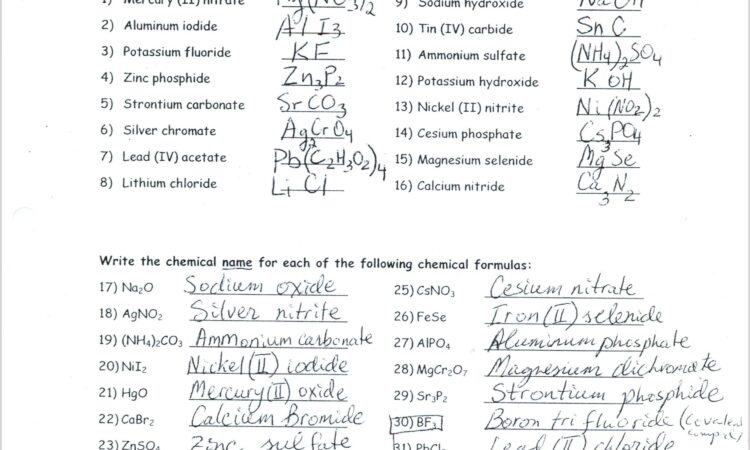 1) Mercury (II) nitrate Hg(NO3)2
2) Aluminum iodide AlI3
3) Potassium fluoride KF
4) Zinc phosphide Zn3P2
5) Strontium carbonate SrCO3
6) Silver chromate Ag2CrO4
7) Lead (IV) acetate Pb(C2H3O2)4
8) Lithium chloride LiCl
9) Sodium hydroxide NaOH
10) Tin (IV) carbide SnC
11) Ammonium sulfate (NH4)2SO4
12) Potassium hydroxide KOH
13) Nickel (II) nitrite Ni(NO2)2
14) Cesium phosphate Cs3PO4
15) Magnesium selenide MgSe
16) Calcium nitride Ca3N2
Write the chemical name for each of the following chemical formulas:
17) Na2O Sodium oxide
18) AgNO2 Silver nitrite
19) (NH4)2CO3 Ammonium carbonate
20) NiI2 Nickel (II) iodide
21) HgO Mercury (II) oxide
22) CaBr2 Calcium Bromide
23) ZnSO4 Zinc sulfate
25) CsNO3 Cesium nitrate
26) FeSe Iron (II) selenide
27) AlPO4 Aluminum phosphate
28) MgCr2O7 Magnesium dichromate
29) Sr3P2 Strontium phosphide
30) BF3 Boron trifluoride (covalent
31) PbCl2 Lead (II) chloride